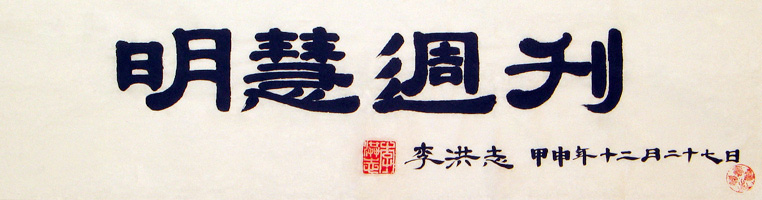 明慧週刊
李洪志 甲申年十二月二十七日